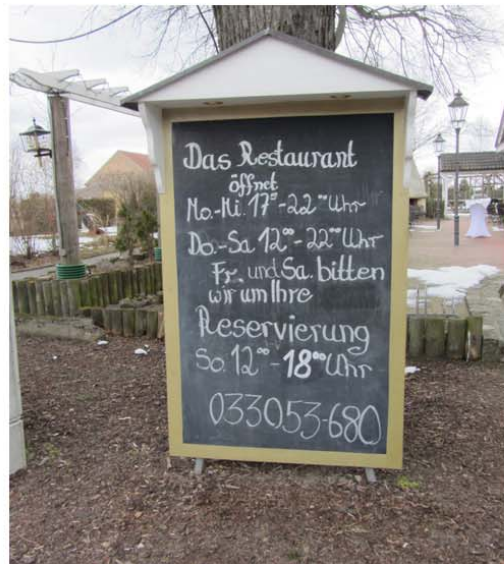 Das Restaurant
öffnet
Mo.-Mi. 17⁰⁰-22⁰⁰ Uhr
Do.-Sa 12⁰⁰-22⁰⁰ Uhr
Fr. und Sa. bitten
wir um Ihre
Reservierung
So. 12⁰⁰-18⁰⁰ Uhr
033053-680